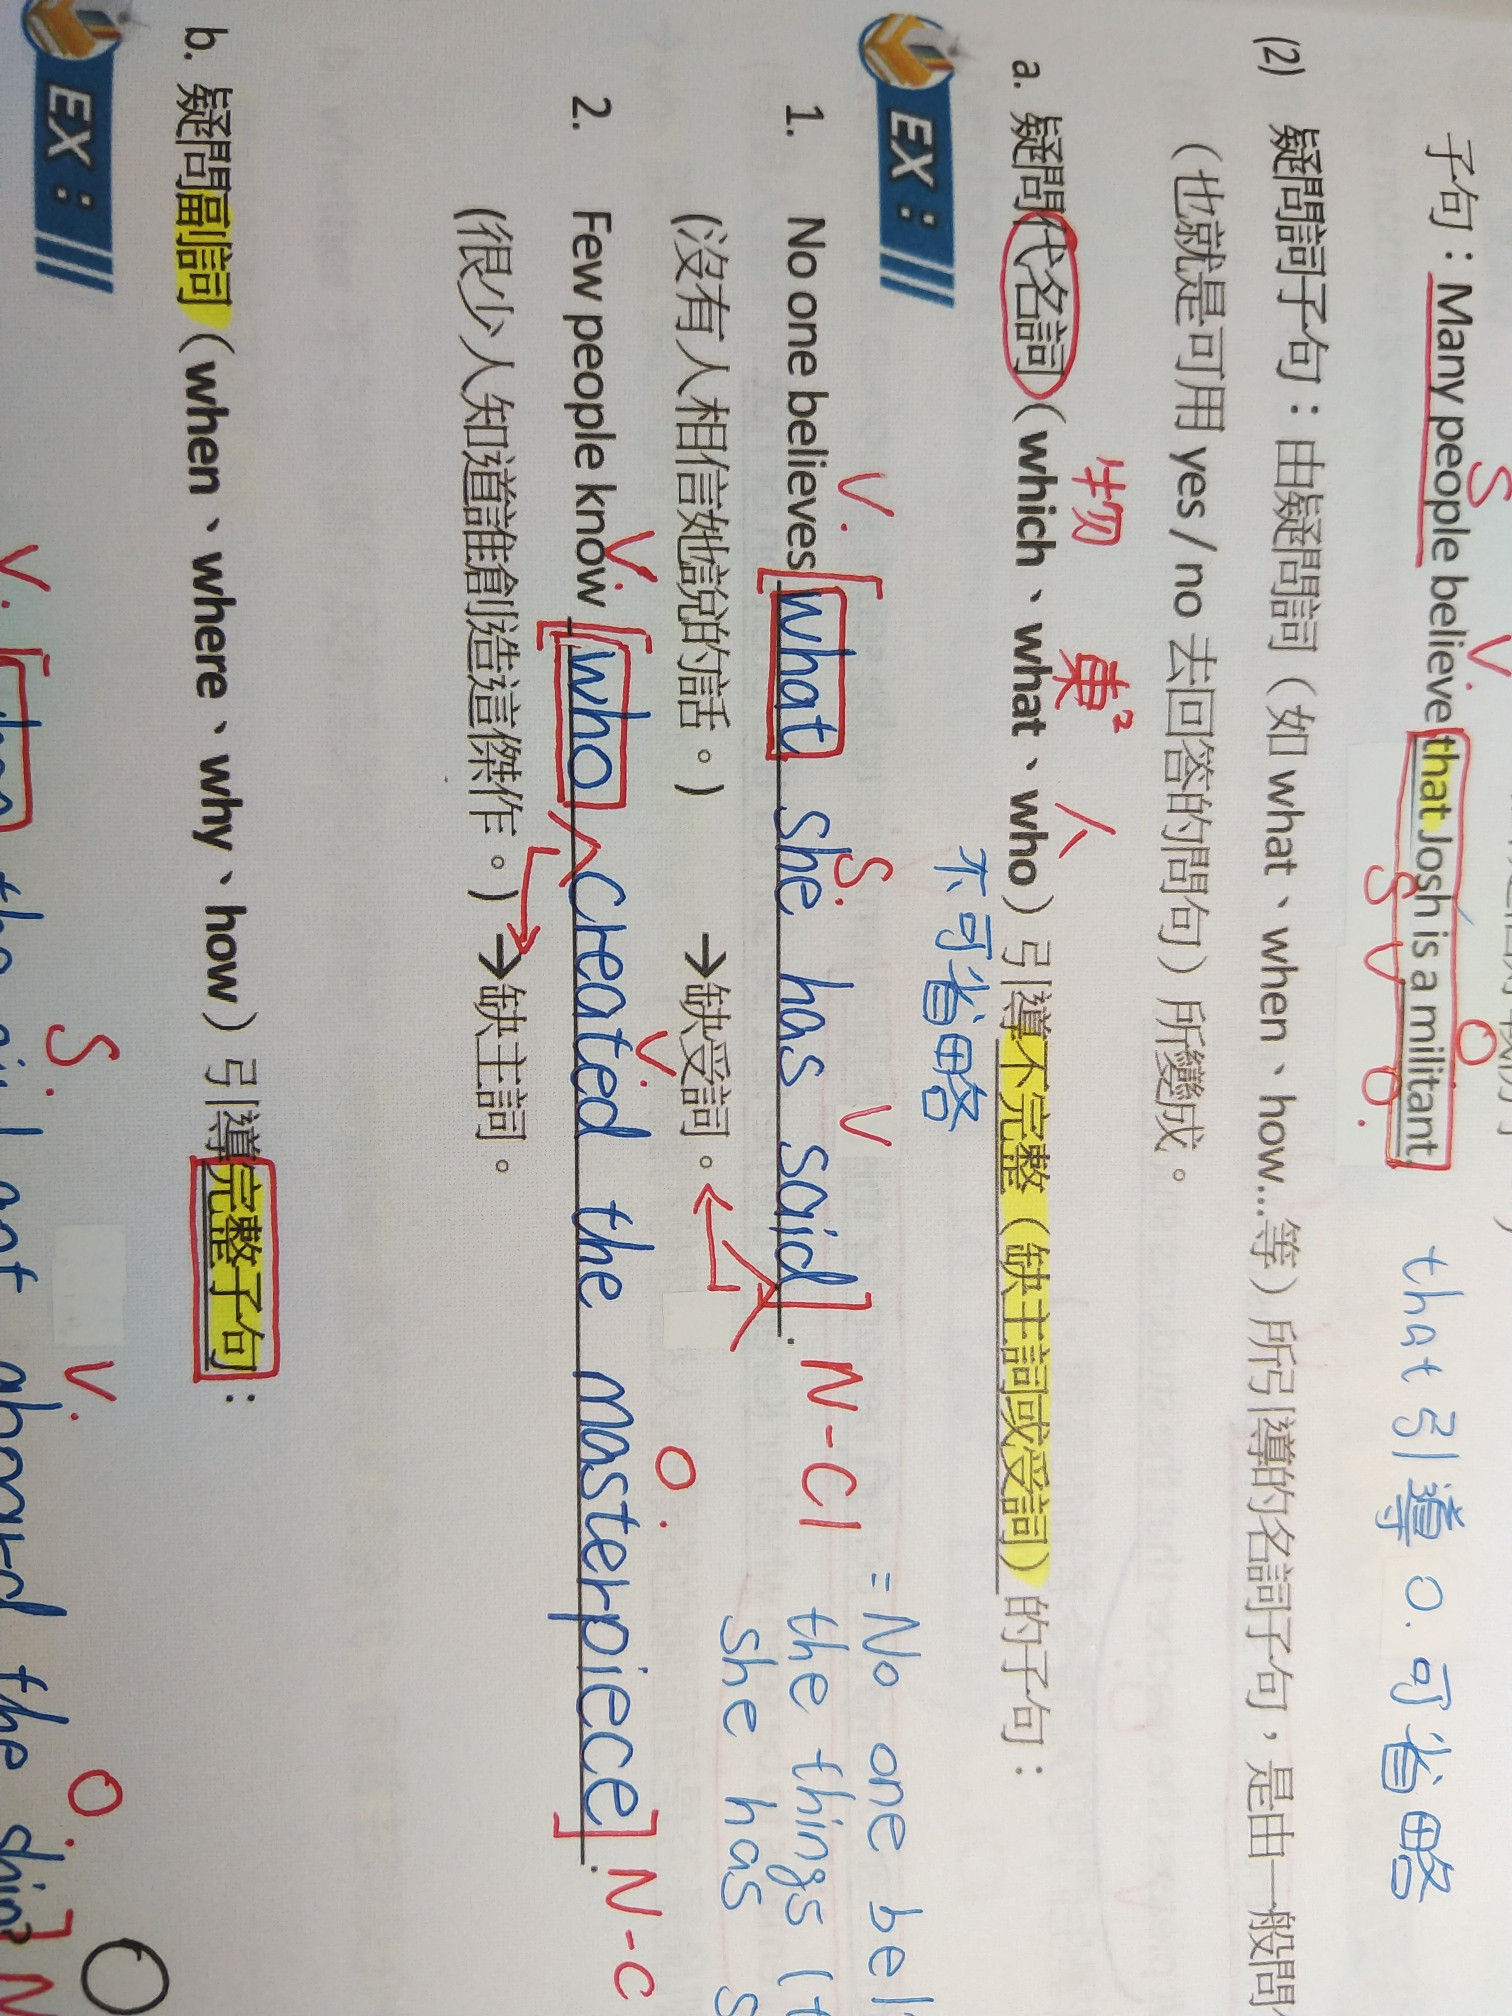 子句：Many people believe that Josh is a militant.
S V. S V O O.
that 引導 O. 可省略
(2) 疑問詞子句：由疑問詞（如 what、when、how...等）所引導的名詞子句，是由一般問
（也就是可用 yes / no 去回答的問句）所變成。
牛物 東² 人
a. 疑問代名詞（which、what、who）引導不完整（缺主詞或受詞）的子句：
不可省略
EX：
V. S. V
1. No one believes [what she has said]. N-Cl
= No one bel
the things (t
she has s
(沒有人相信她說的話。) →缺受詞。
V. V. O.
2. Few people know [who created the masterpiece]. N-C
(很少人知道誰創造這傑作。) →缺主詞。
b. 疑問副詞（when、where、why、how）引導完整子句：
EX：
V. S. V. O.
the aboard the ship] N